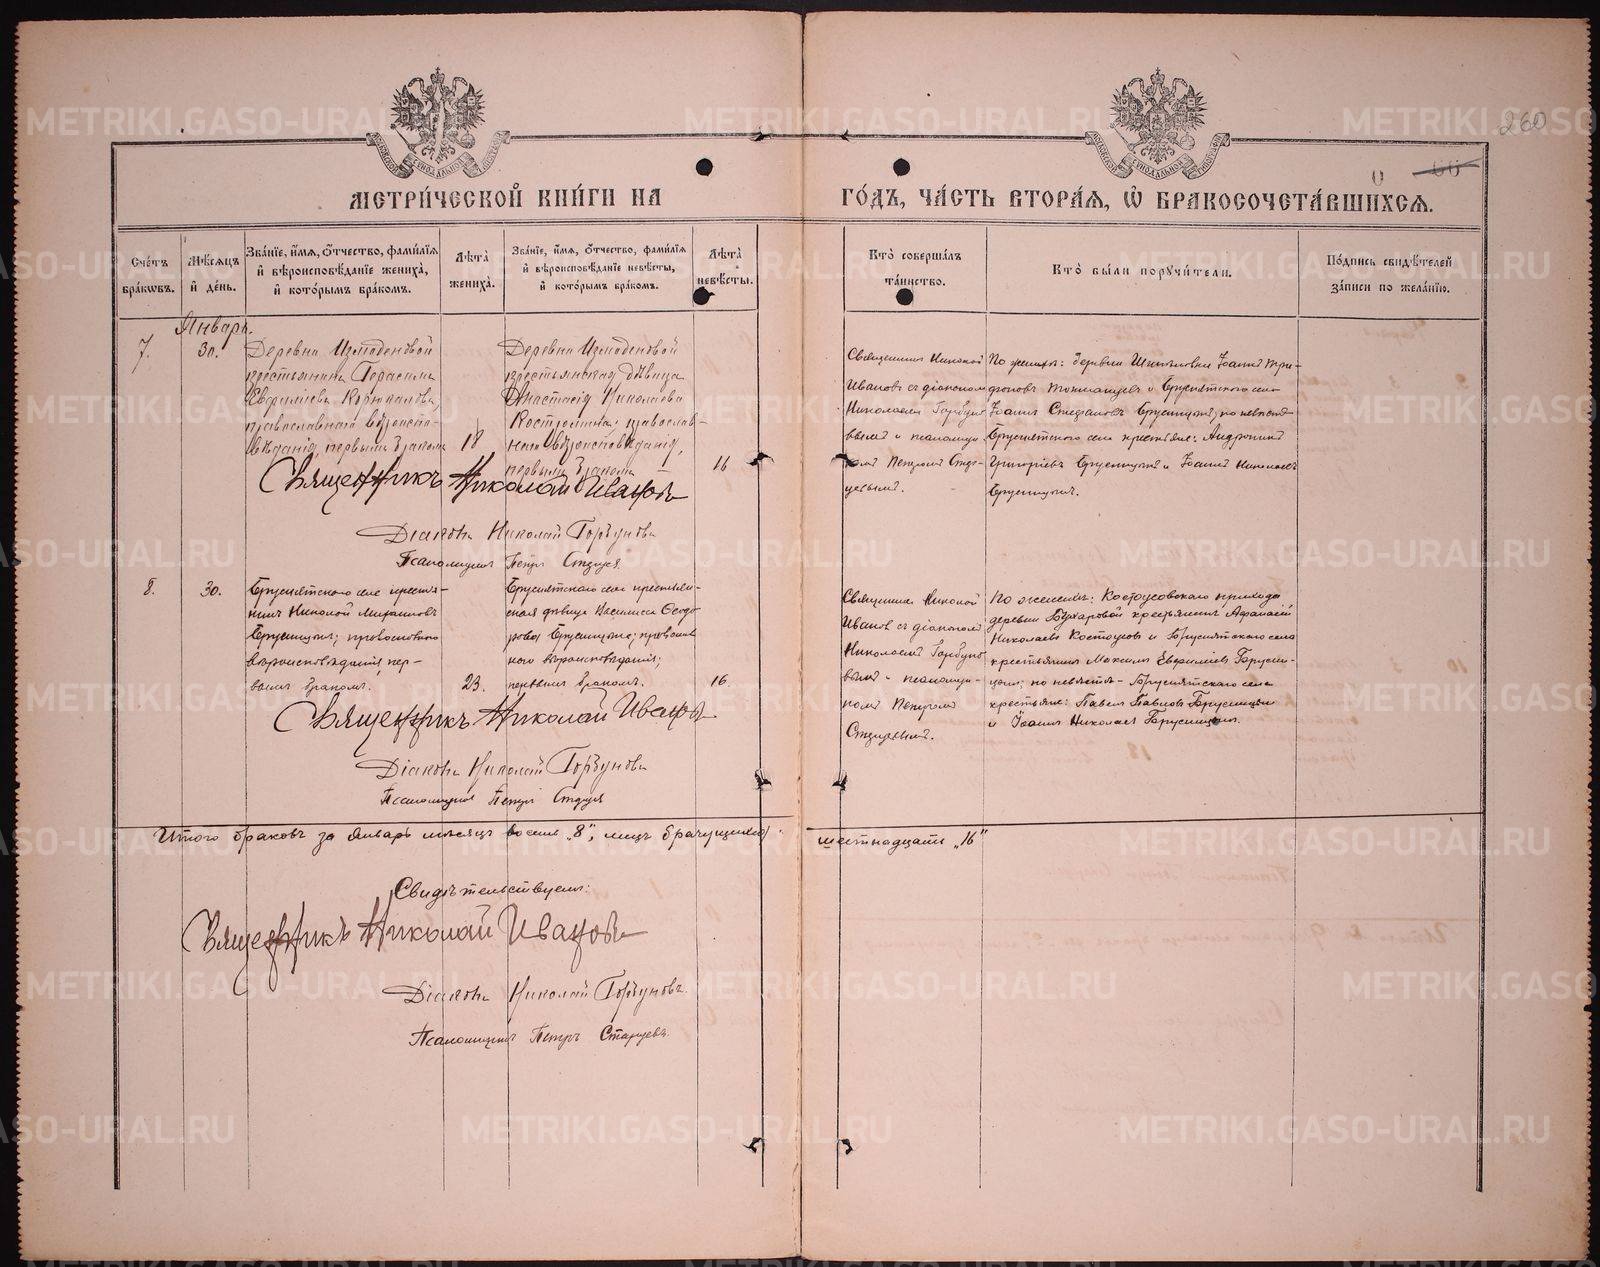 260
МЕТРИ́ЧЕСКОЙ КНИ́ГИ НА ГО́ДЪ, ЧА́СТЬ ВТОРА́Я, Ѡ БРАКОСОЧЕТА́ВШИХСЯ.
Сче́тъ бра́кѡвъ.
Мѣ́сяцъ и де́нь.
Зва́нїе, и́мя, о́тчество, фами́лїя и вѣроисповѣ́данїе жениха̀, и кото́рымъ бра́комъ.
Лѣта̀ жениха̀.
Зва́нїе, и́мя, о́тчество, фами́лїя и вѣроисповѣ́данїе невѣ́сты, и кото́рымъ бра́комъ.
Лѣта̀ невѣ́сты.
Кто̀ соверша́лъ та́инство.
Кто̀ бы́ли поручи́тели.
По́дпись свидѣ́телей за́писи по жела́нїю.
Январь.
7.
30.
Деревни Измоденовой
крестьянинъ Герасимъ
православнаго вѣроиспо-
вѣданія, первымъ бракомъ
18
Деревни Измоденовой
крестьянская дѣвица
Анастасія Николаева
Костромина; православ-
наго вѣроисповѣданія,
первымъ бракомъ
16
Священникъ Николай
Ивановъ съ діакономъ
Николаемъ Горбуно-
вымъ и псаломщи-
комъ Петромъ Стар-
цевымъ.
По женихѣ: деревни Іоаннъ Три-
фоновъ и Бруснятского села
Іоаннъ Стефановъ Брусницынъ; по невѣстѣ
Бруснятского села крестьяне: Андроникъ
Григорьевъ Брусницынъ и Іоаннъ Николаевъ
Брусницынъ.
Священникъ Николай Ивановъ
Діаконъ Николай Горбуновъ
Псаломщикъ Петръ Старцевъ
8.
30.
Бруснятского села крестья-
нинъ Николай Михаиловъ
Брусницынъ; православнаго
вѣроисповѣданія, пер-
вымъ бракомъ.
23.
Бруснятского села крестьян-
ская дѣвица Василисса Ѳеодо-
рова Брусницына; православ-
наго вѣроисповѣданія;
первымъ бракомъ.
16.
Священникъ Николай
Ивановъ съ діакономъ
Николаемъ Горбуно-
вымъ и псаломщи-
комъ Петромъ
Старцевымъ.
По женихѣ: Костоусовскаго прихода
деревни Бухаровой крестьянинъ Афанасій
Николаевъ Костоусовъ и Бруснятского села
крестьянинъ Максимъ Евфиміевъ Брусни-
цынъ; по невѣстѣ - Бруснятского села
крестьяне: Павелъ Павловъ Брусницынъ
и Іоаннъ Николаевъ Брусницынъ.
Священникъ Николай Ивановъ
Діаконъ Николай Горбуновъ
Псаломщикъ Петръ Старцевъ
Итого браковъ за Январь мѣсяцъ восемь „8", лицъ брачущихся шестнадцать „16"
Свидѣтельствуемъ:
Священникъ Николай Ивановъ
Діаконъ Николай Горбуновъ.
Псаломщикъ Петръ Старцевъ.
METRIKI.GASO-URAL.RU